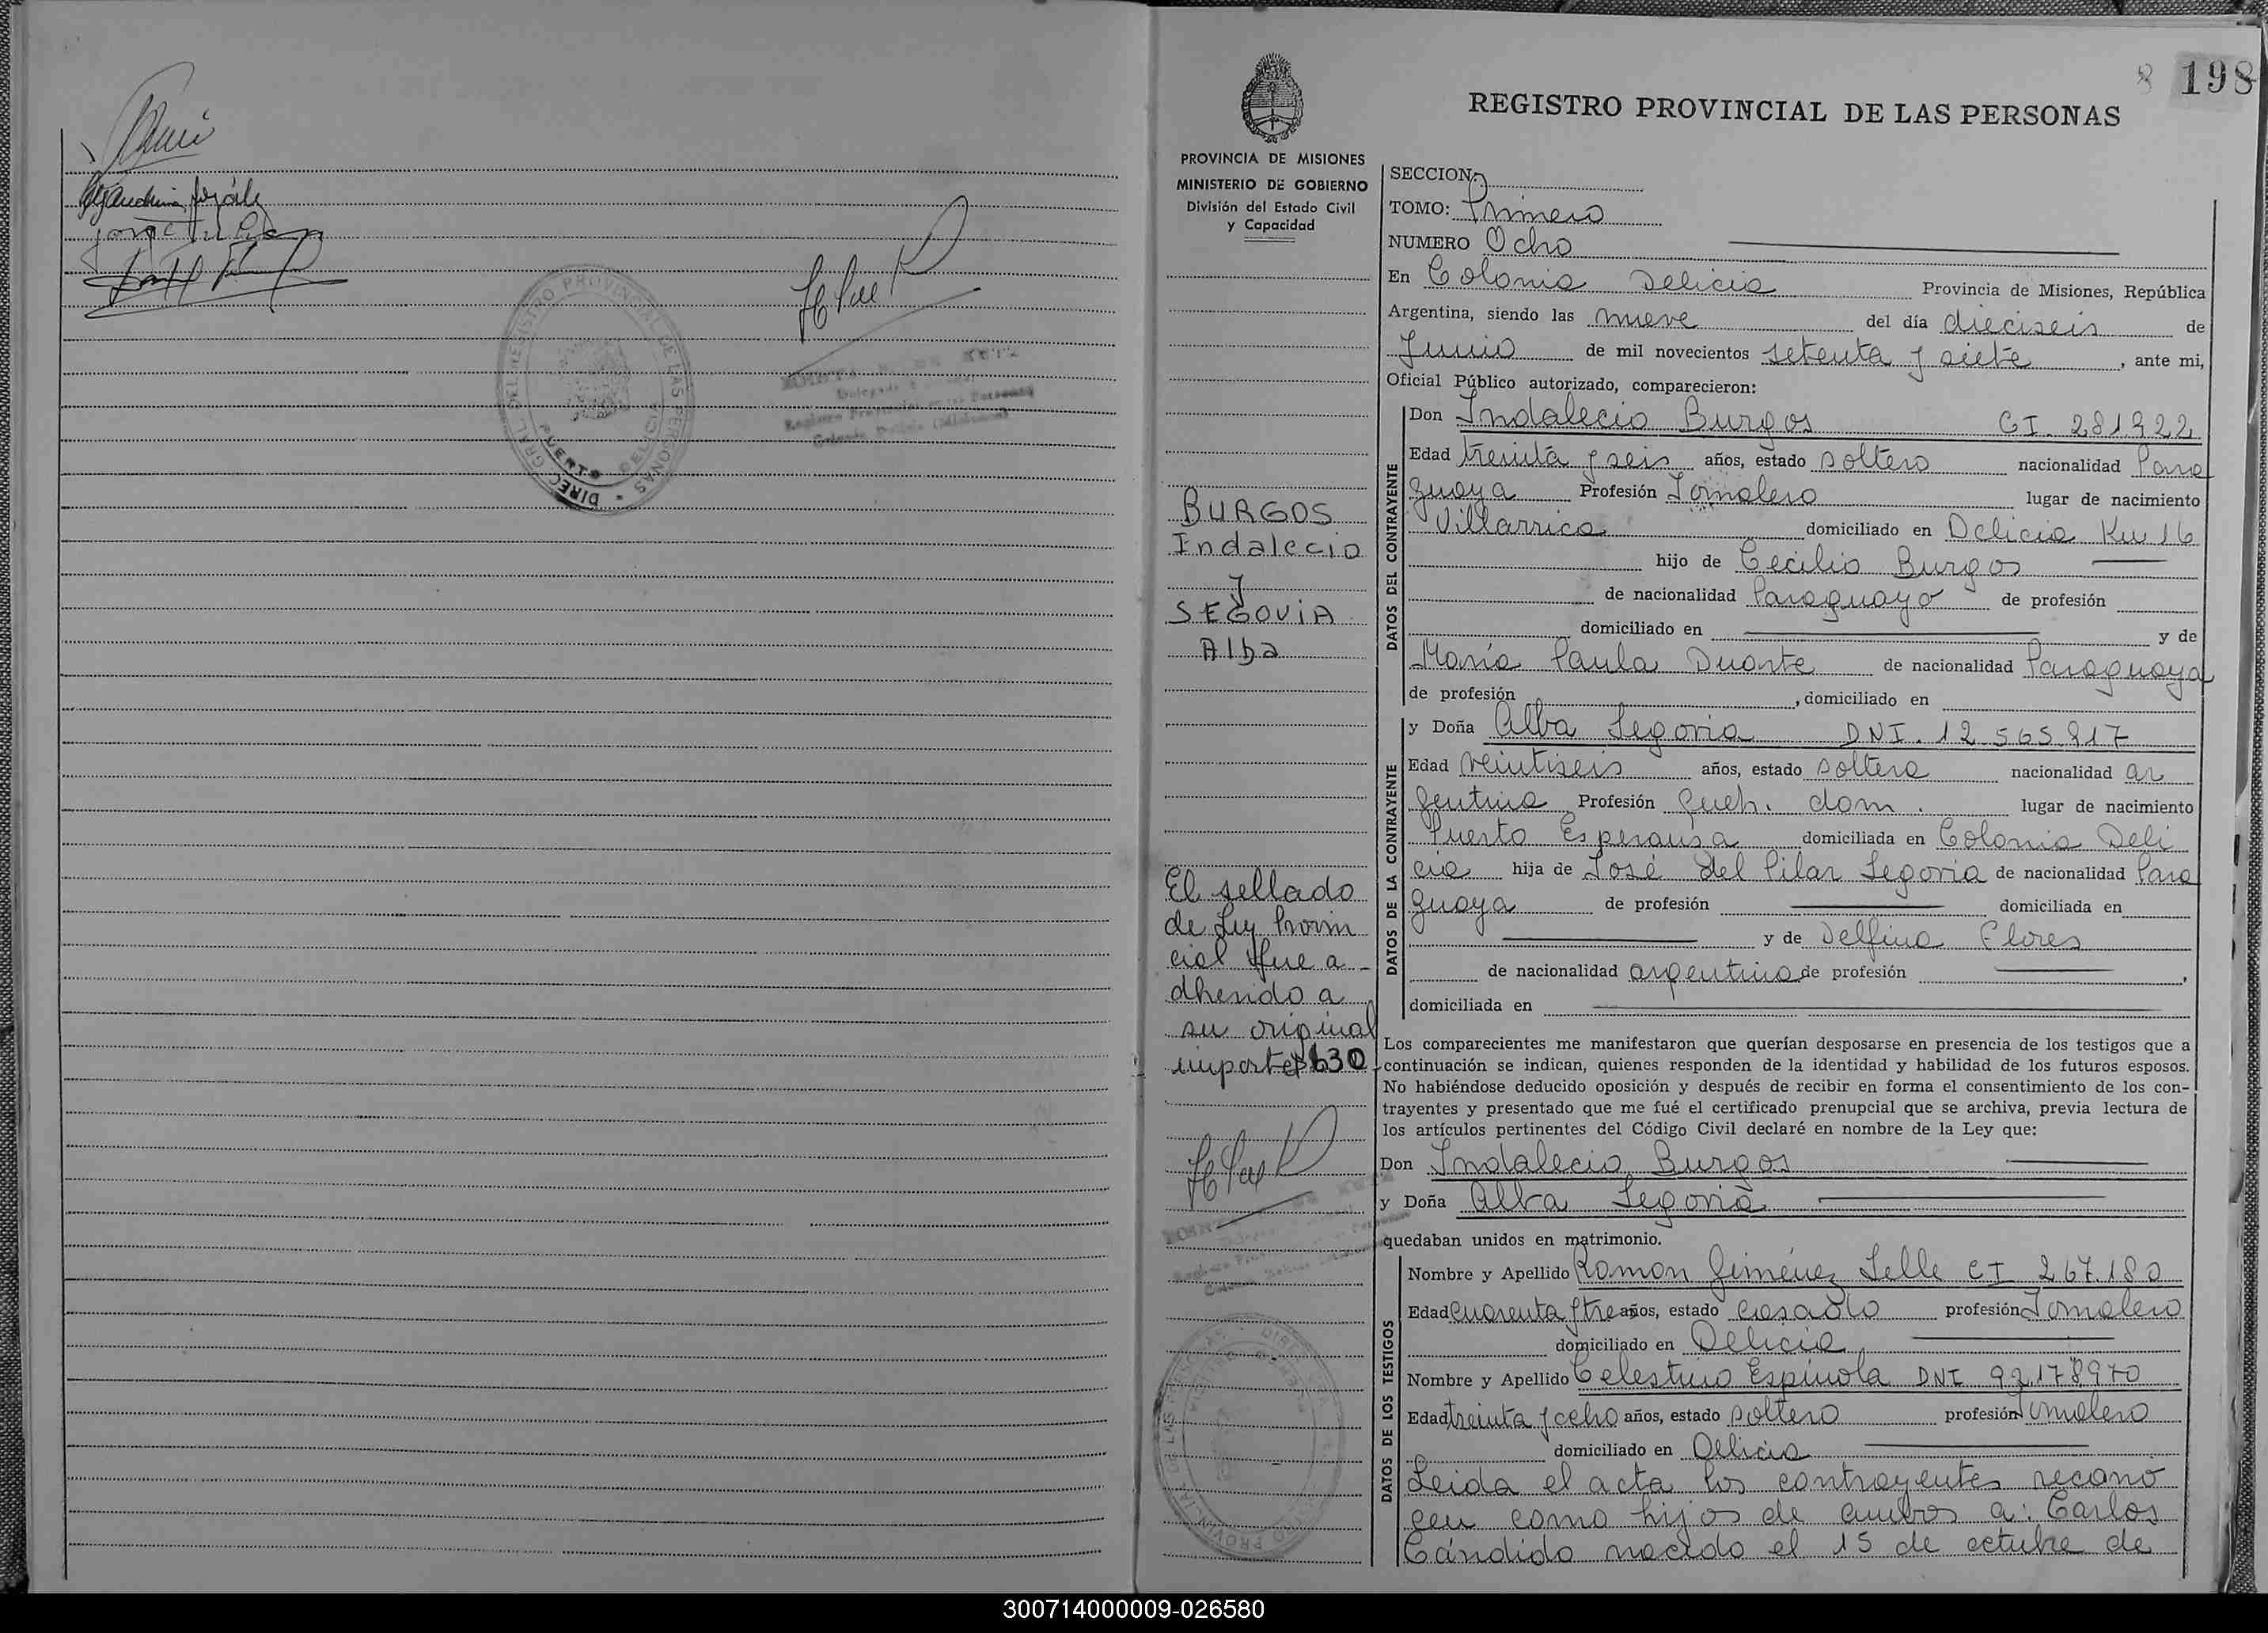 8 198
REGISTRO PROVINCIAL DE LAS PERSONAS
PROVINCIA DE MISIONES
MINISTERIO DE GOBIERNO
División del Estado Civil
y Capacidad
BURGOS
Indalecio
y
SEGOVIA
Alba
El sellado
de Ley Provin
cial fue a-
dherido a
su original
importe $630
SECCION:
TOMO: Primero
NUMERO Ocho
En Colonia Delicia Provincia de Misiones, República
Argentina, siendo las nueve del día dieciseis de
Junio de mil novecientos setenta y siete, ante mi,
Oficial Público autorizado, comparecieron:
DATOS DEL CONTRAYENTE
Don Indalecio Burgos CI. 281.922
Edad treinta y seis años, estado soltero nacionalidad Para
guaya Profesión Jornalero lugar de nacimiento
Villarrica domiciliado en Delicia Km 16
hijo de Cecilio Burgos
de nacionalidad Paraguayo de profesión
domiciliado en y de
María Paula Duarte de nacionalidad Paraguaya
de profesión , domiciliado en
DATOS DE LA CONTRAYENTE
y Doña Alba Segovia DNI. 12.565.817
Edad veintiseis años, estado soltera nacionalidad ar
gentina Profesión Queh. dom. lugar de nacimiento
Puerto Esperanza domiciliada en Colonia Deli
cia hija de José del Pilar Segovia de nacionalidad Para
guaya de profesión domiciliada en
y de Delfina Flores
de nacionalidad argentina de profesión ,
domiciliada en
Los comparecientes me manifestaron que querían desposarse en presencia de los testigos que a
continuación se indican, quienes responden de la identidad y habilidad de los futuros esposos.
No habiéndose deducido oposición y después de recibir en forma el consentimiento de los con-
trayentes y presentado que me fué el certificado prenupcial que se archiva, previa lectura de
los artículos pertinentes del Código Civil declaré en nombre de la Ley que:
Don Indalecio Burgos
y Doña Alba Segovia
quedaban unidos en matrimonio.
DATOS DE LOS TESTIGOS
Nombre y Apellido Ramon Giménez Lelle CI 267.180
Edad cuarenta y tres años, estado casado profesión Jornalero
domiciliado en Delicia
Nombre y Apellido Celestino Espínola DNI 92.178970
Edad treinta y ocho años, estado soltero profesión Jornalero
domiciliado en Delicia
Leida el acta los contrayentes recono
cen como hijos de ambos a: Carlos
Cándido nacido el 15 de octubre de
300714000009-026580